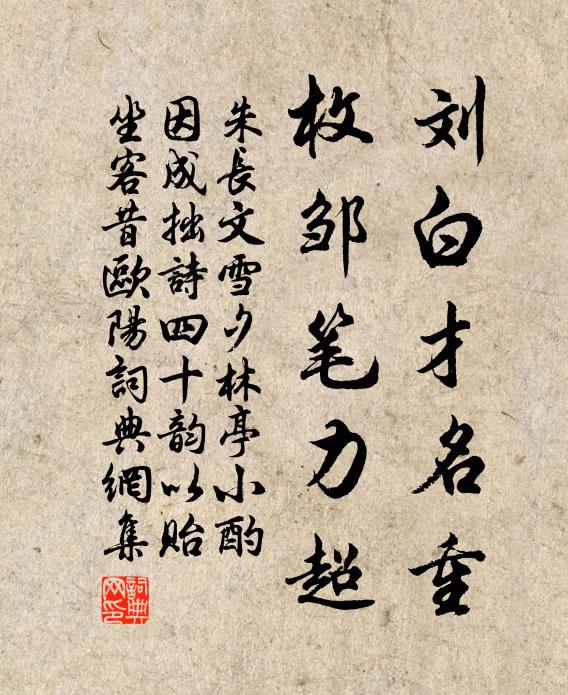 刘白才名重
枚邹笔力超
朱長文雪夕林亭小酌
因成拙詩四十韵以貽
坐客昔歐陽詞典網集
詞典